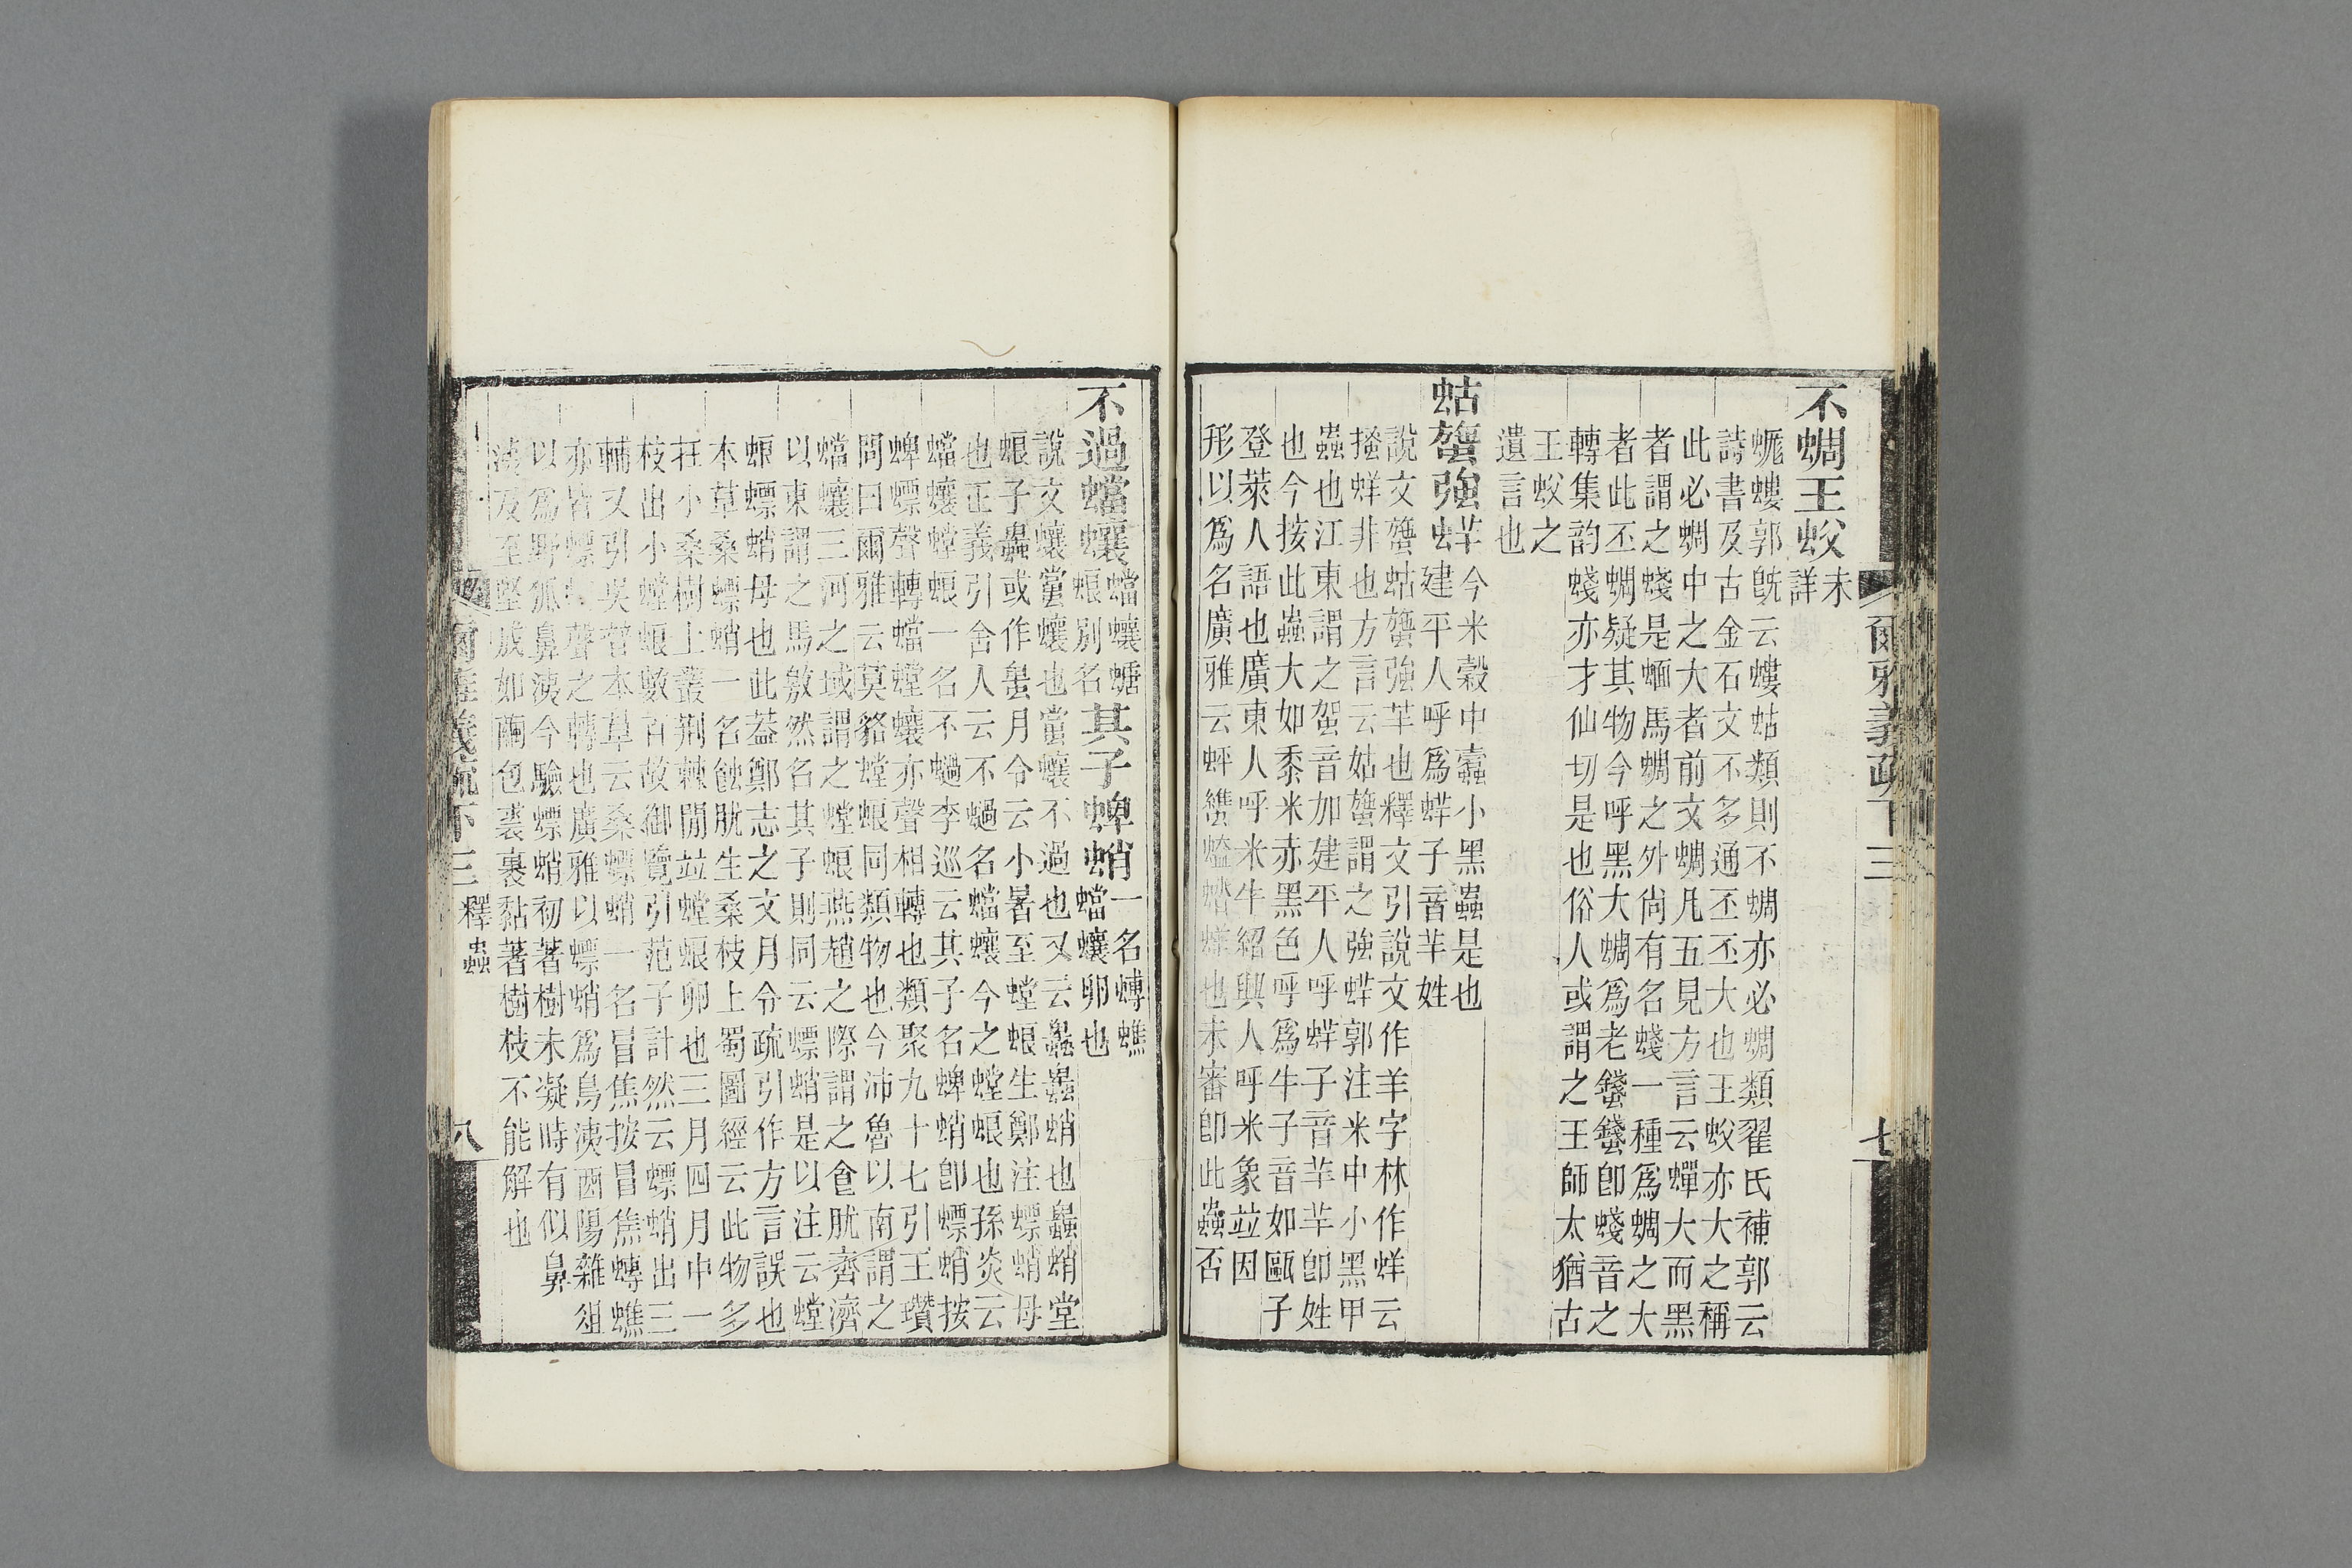 爾雅義疏下三
七
不蜩王蚥未
詳
蝋螻郭旣云螻蛄類則不蜩亦必蜩類翟氏補郭云
詩書及古金石文不多通丕丕大也王蚥亦大之稱
此必蜩中之大者前文蜩凡五見方言云蟬大而黑
者謂之蝬是蝒馬蜩之外尙有名蝬一種爲蜩之大
者此丕蜩疑其物今呼黑大蜩爲老蠽蠽卽蝬音之
轉集韵蝬亦才仙切是也俗人或謂之王師太猶古
王蚥之
遺言也
蛄䗐強蛘今米穀中蠹小黑蟲是也
建平人呼爲蛘子音羋姓
說文䗐蛄䗐強羋也釋文引說文作羊字林作蛘云
搔蛘非也方言云姑䗐謂之強蛘郭注米中小黑甲
蟲也江東謂之䖔音加建平人呼蛘子音羋羋卽姓
也今按此蟲大如黍米赤黑色呼爲牛子音如甌子
登萊人語也廣東人呼米牛紹興人呼米象竝因
形以爲名廣雅云
也未審卽此蟲否
不過蟷蠰蟷蠰螗
蜋別名其子蜱蛸一名䗚蟭
蟷蠰卵也
說文蠰當蠰也當蠰不過也又云蟲蛸也蟲蛸堂
蜋子蟲或作䖹月令云小暑至螳蜋生鄭注螵蛸母
也正義引舍人云不蟷名蟷蠰今之螳蜋也孫炎云
蟷蠰螳蜋一名不蟷李巡云其子名蜱蛸卽螵蛸按
蜱螵聲轉蟷螳蠰亦聲相轉也類聚九十七引王瓚
問曰爾雅云莫貉螳蜋同類物也今沛魯以南謂之
蟷蠰三河之域謂之螳蜋燕趙之際謂之食肬齊濟
以東謂之馬敫然名其子則同云螵蛸是以注云螳
蜋螵蛸母也此葢鄭志之文月令疏引作方言誤也
本草桑螵蛸一名蝕肬生桑枝上蜀圖經云此物多
在小桑樹上叢荆棘閒竝螳蜋卵也三月四月中一
枝出小螳蜋數百故御覽引范子計然云螵蛸出三
輔又引吳普本草云桑螵蛸一名冒焦按冒焦䗚蟭
亦皆螵蛸聲之轉也廣雅以螵蛸爲烏洟酉陽雜俎
以爲野狐鼻洟今驗螵蛸初著樹未凝時有似鼻
洟及至堅成如繭包裘裹黏著樹枝不能解也
爾雅義疏下三 釋蟲
八